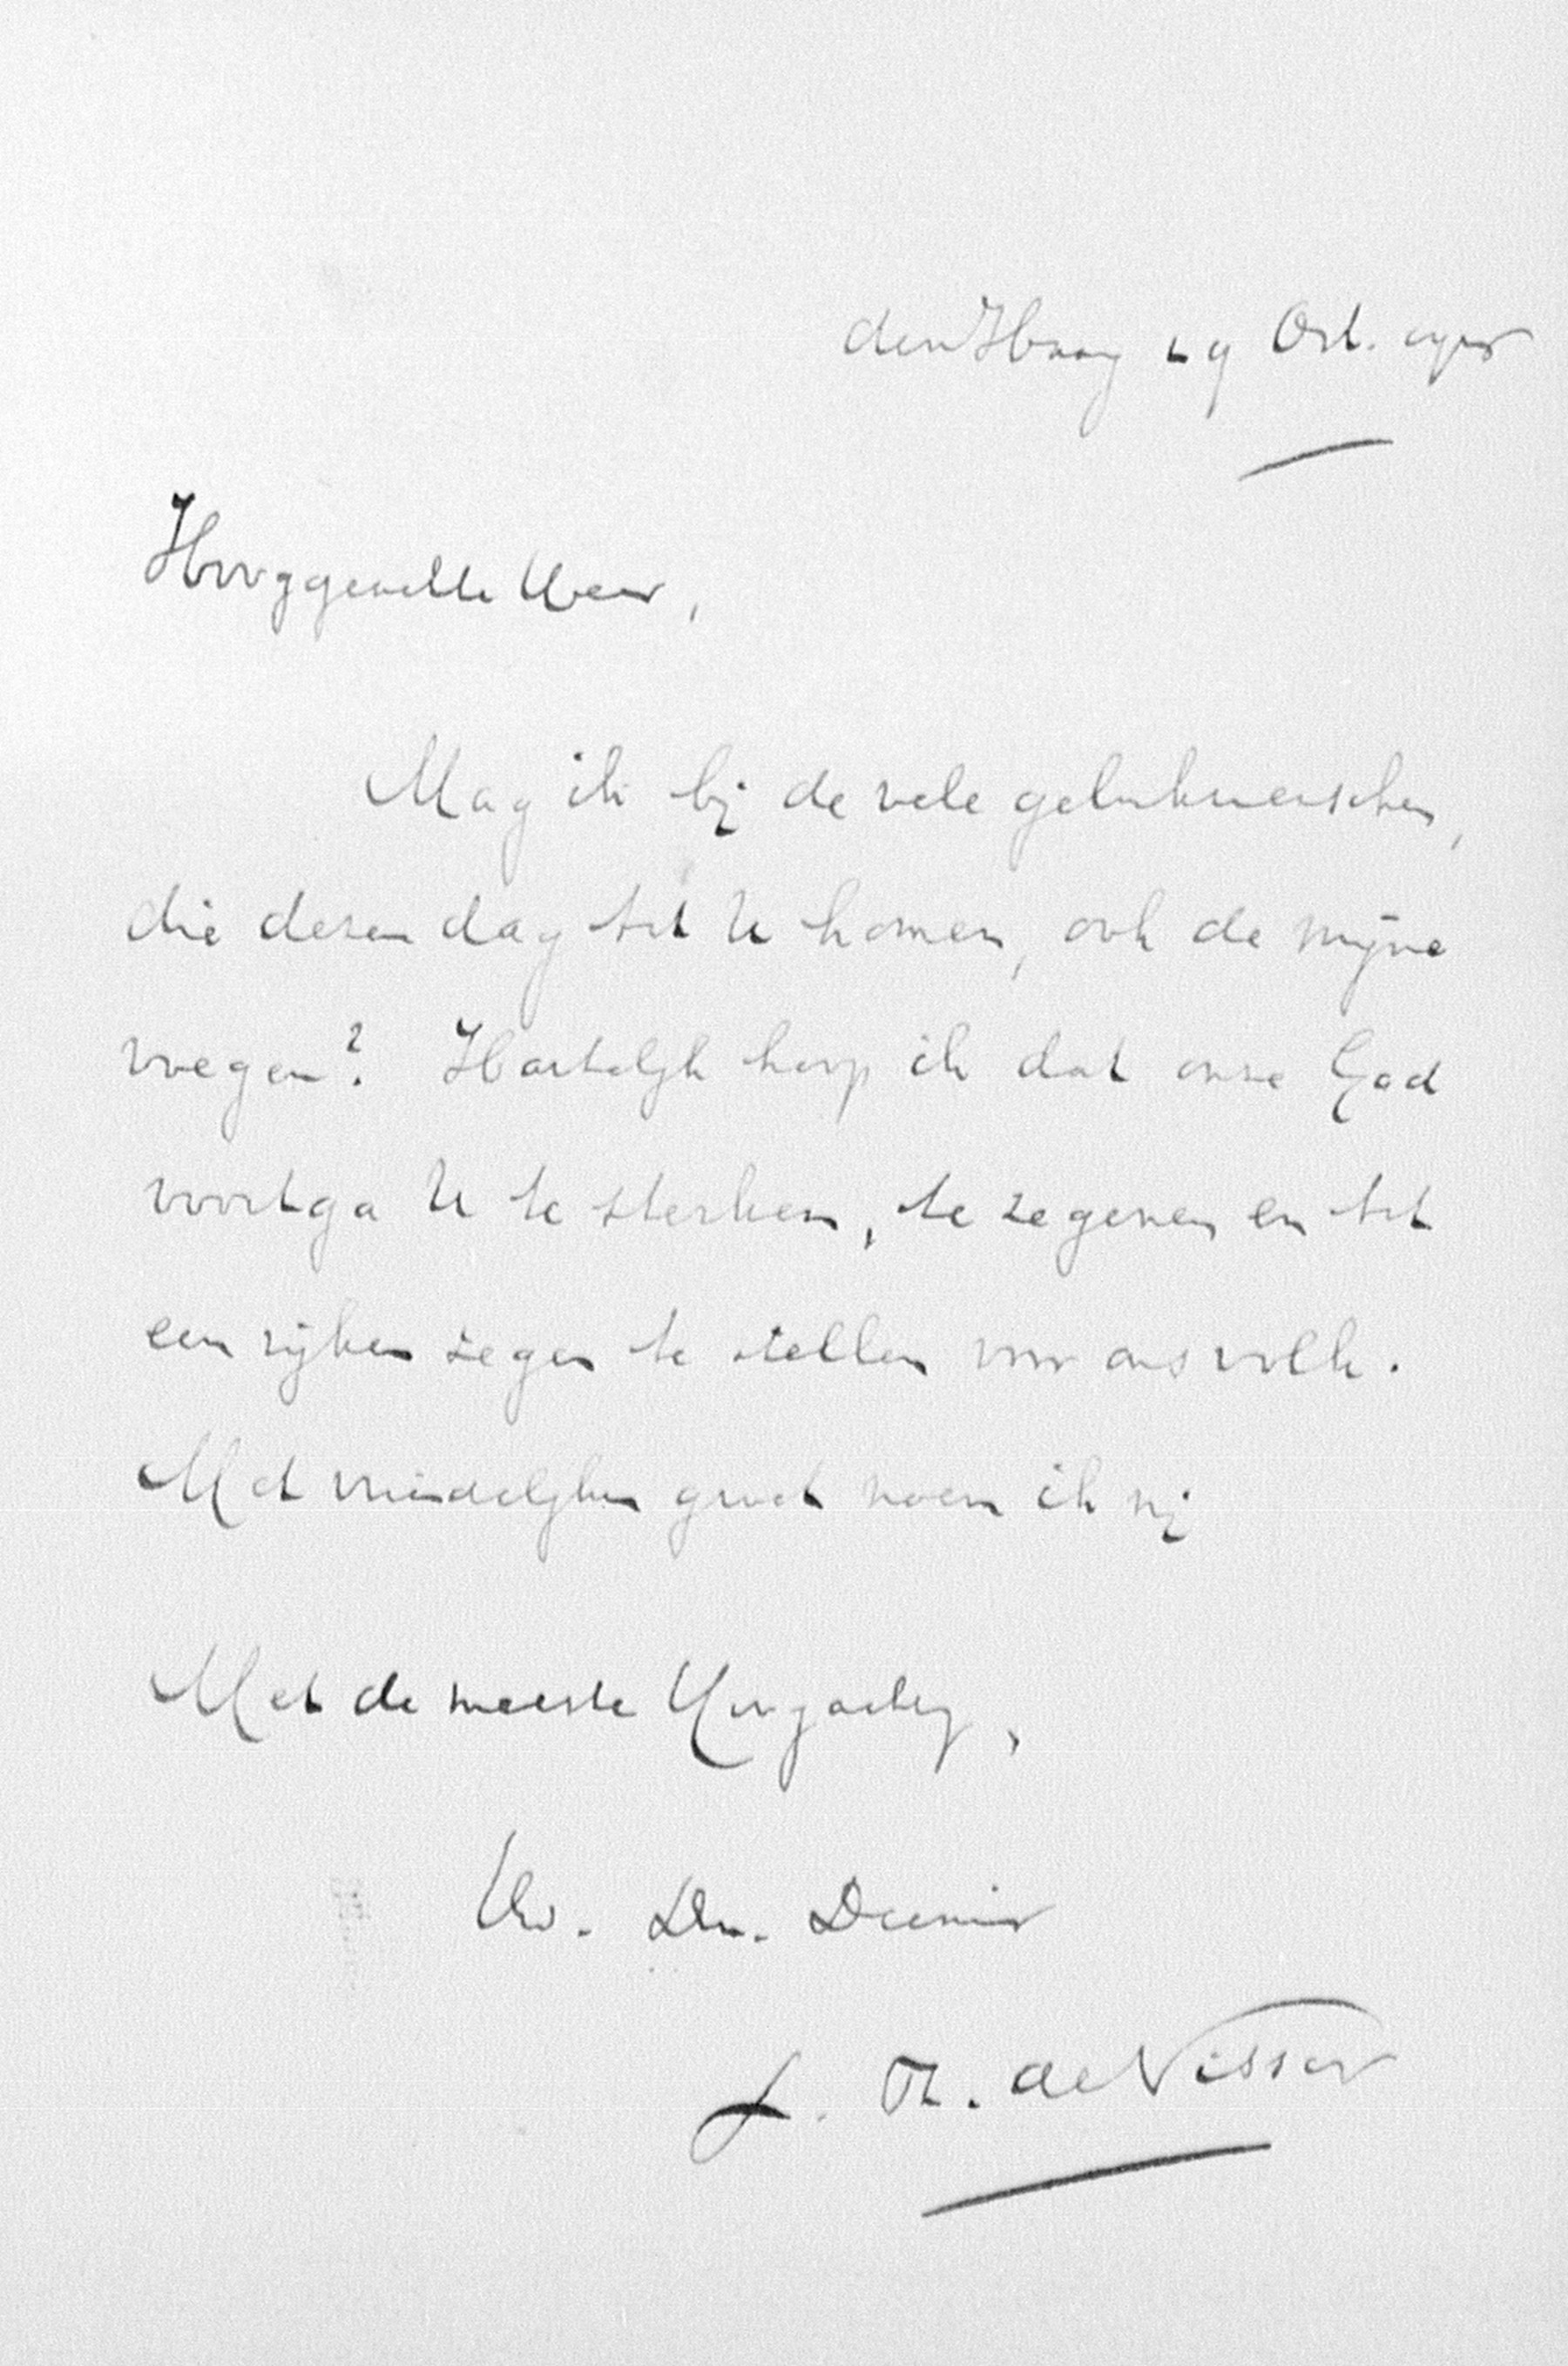 den Haag 29 Oct.
Hooggeachte Heer,
Mag ik bij de vele gelukwenschen,
die dezen dag tot U komen, ook de mijne
voegen? Hartelijk hoop ik dat onze God
voortga U te sterken, te zegenen en tot
een rijken zegen te stellen voor ons volk.
Met vriendelijken groet noem ik mij
Met de meeste Hoogachtg,
Uw. Dw. Dienaar
J. Th. de Visser